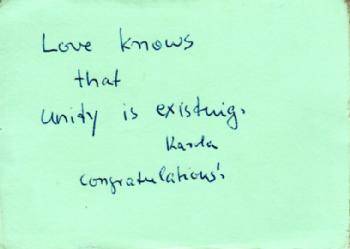 Love knows
that
unity is existing.
Karla
congratulations!